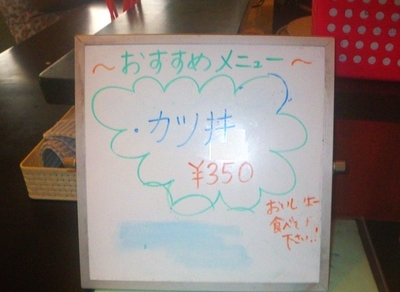 ～おすすめメニュー～
カツ丼
¥350
おいしいよー
食べて
下さい